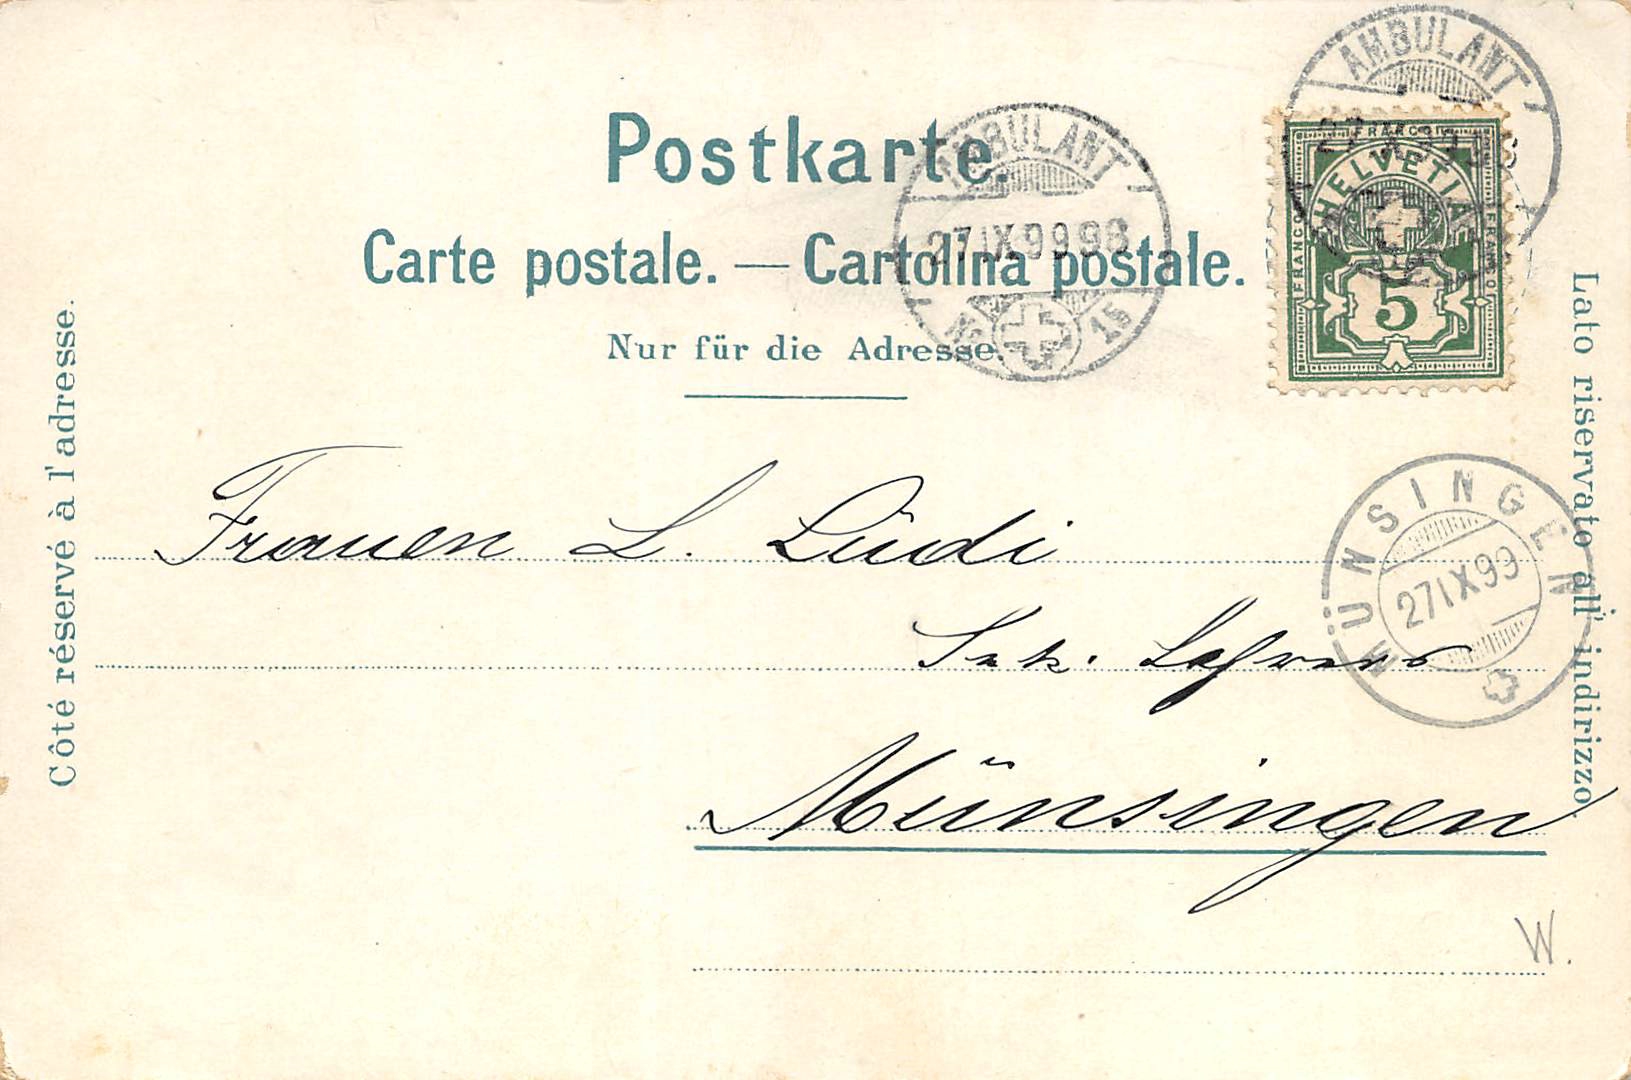 Postkarte.
Carte postale. — Cartolina postale.
Nur für die Adresse.
Côté réservé à l'adresse.
Lato riservato all' indirizzo
AMBULANT
27 IX 99 98
No 15
AMBULANT
FRANCO
FRANCO
FRANCO
HELVETIA
5
MÜNSINGEN
27 IX 99
Frauen L. Lüdi
Sek. Lehrers
Münsingen
W.